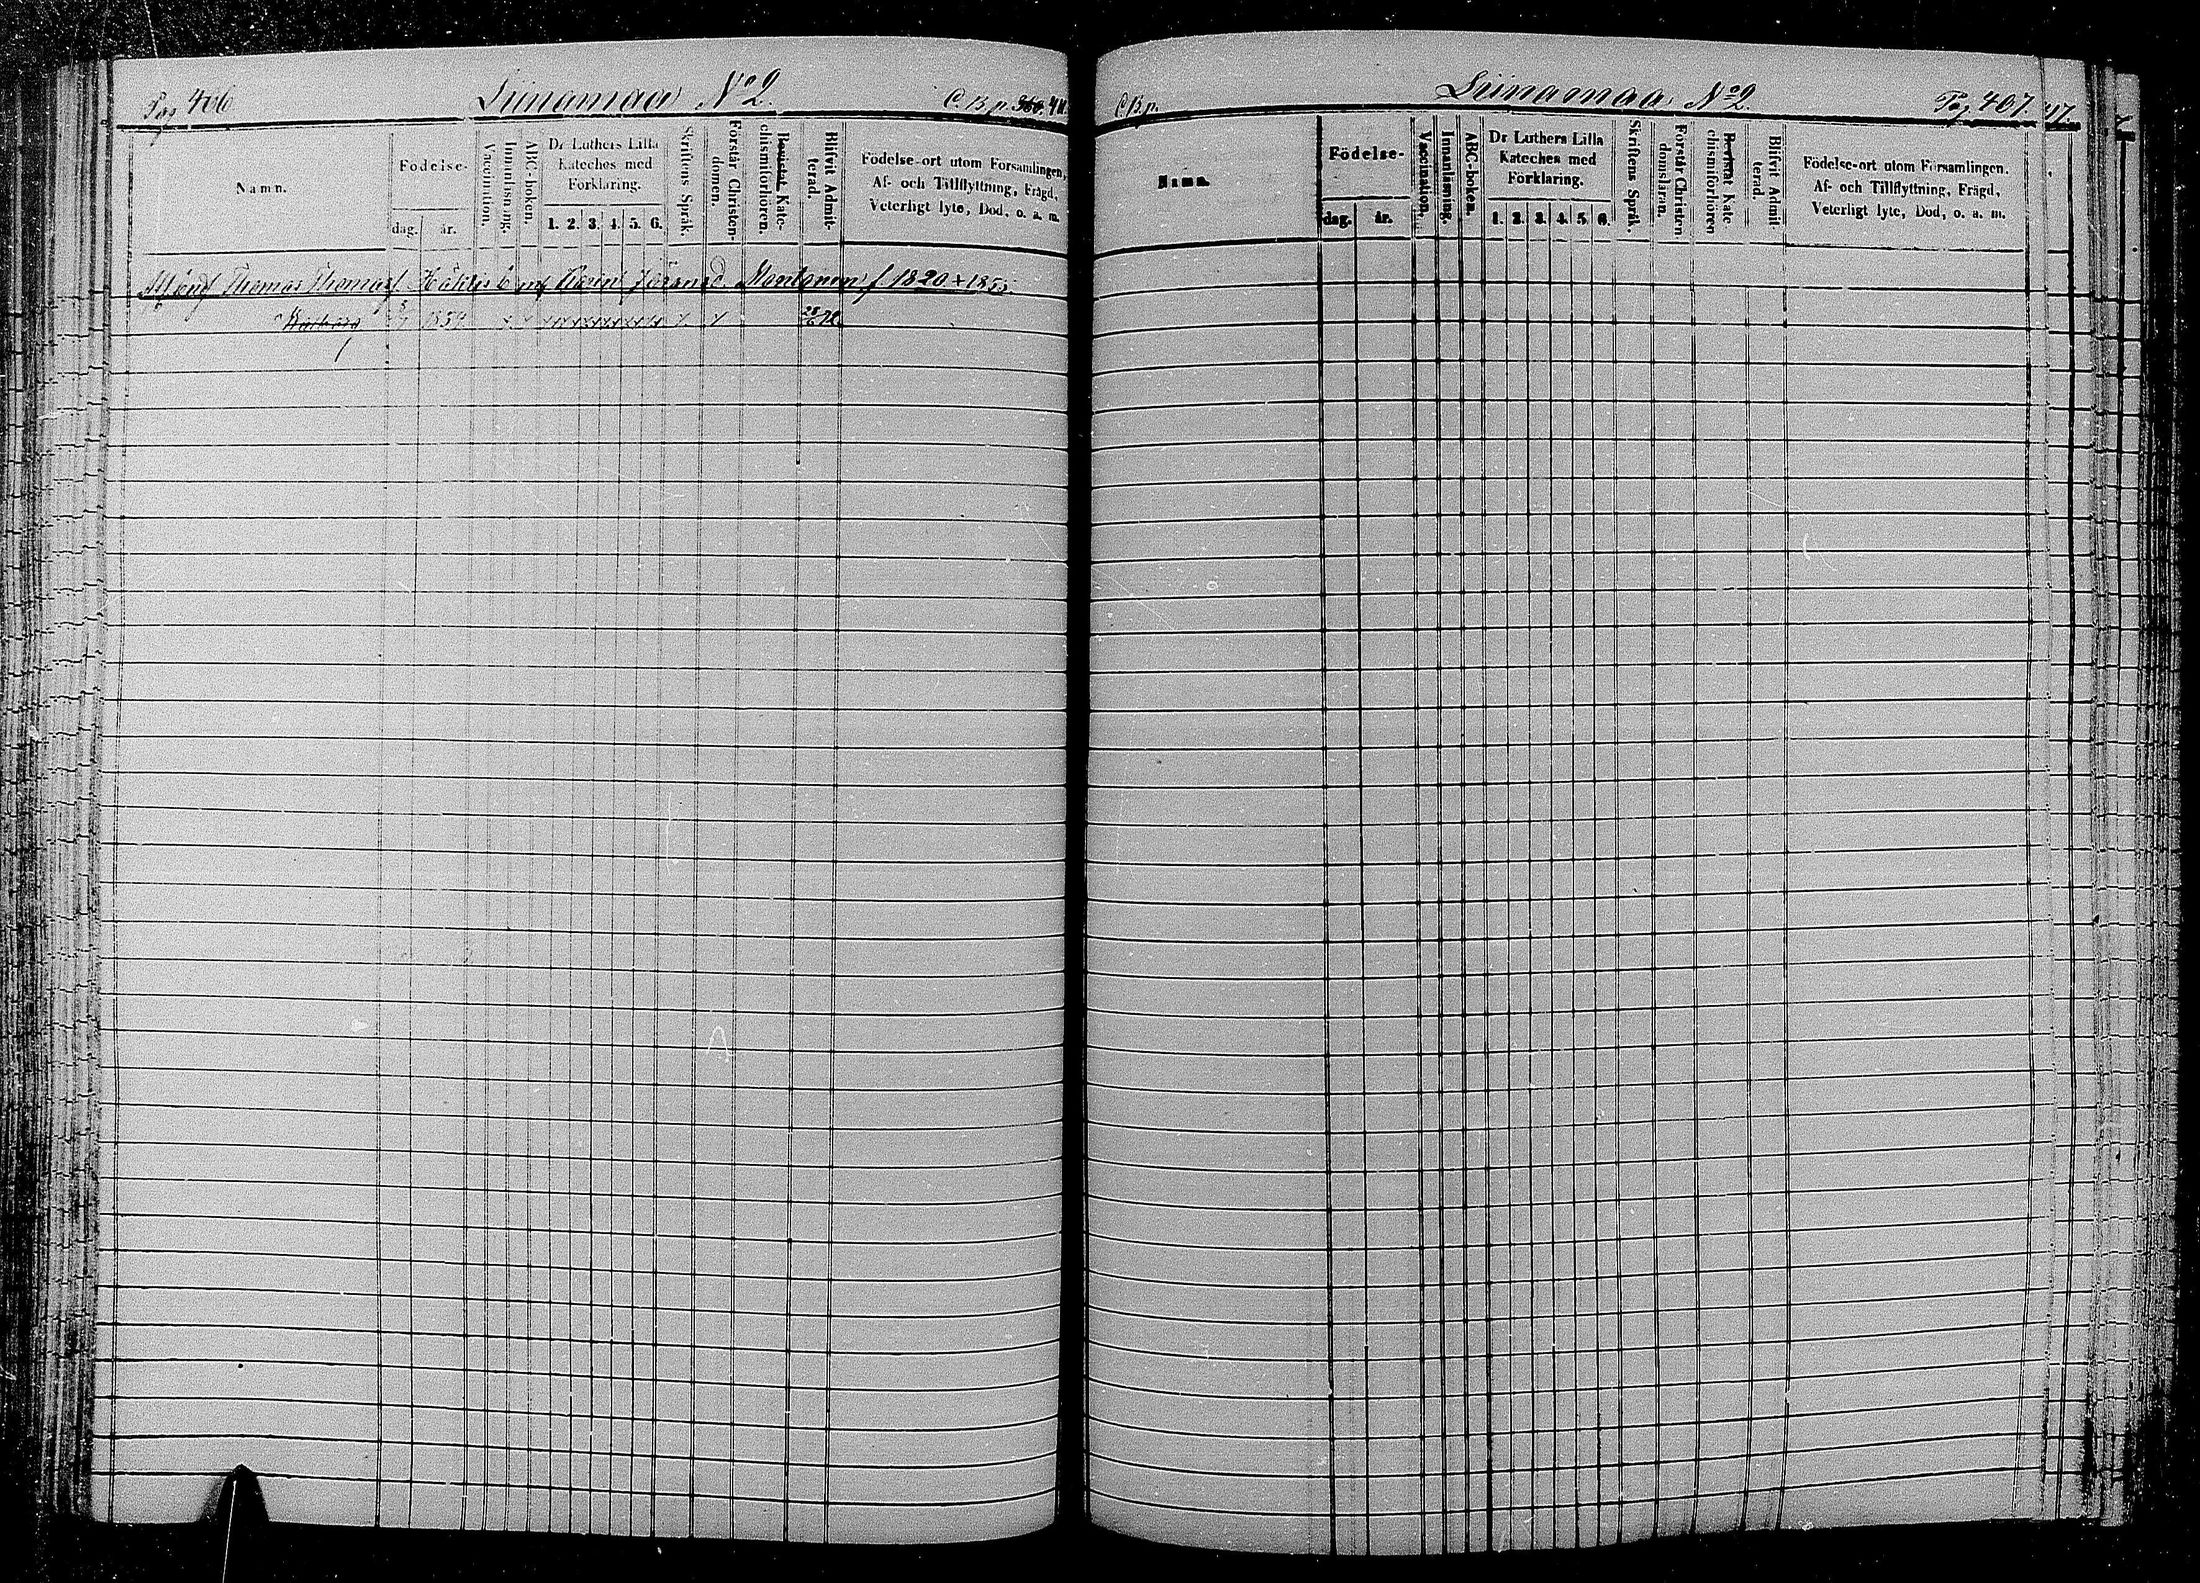 Pag 406 Liinamaa No 2. C.B.p. 360. 411
Namn.
Födelse-
dag. år.
Vaccination.
Innanläsning.
ABC-boken.
Dr Luthers Lilla
Kateches med
Förklaring.
1. 2. 3. 4. 5. 6.
Skriftens Språk.
Förstår Christen-
domen.
Bevistat Kate-
chismiförhören.
Blifvit Admit-
terad.
Födelse-ort utom Församlingen,
Af- och Tillflyttning, Frägd,
Veterligt lyte, Död, o. a. m.
Thomas Thomas f 1820 + 1855.
Barbara 1854
C.B.p. Liinamaa No 2. Pag 407.
Namn.
Födelse-
dag. år.
Vaccination.
Innanläsning.
ABC-boken.
Dr Luthers Lilla
Kateches med
Förklaring.
1. 2. 3. 4. 5. 6.
Skriftens Språk.
Förstår Christen-
domsläran.
Bevistat Kate-
chismiförhören
Blifvit Admit-
terad.
Födelse-ort utom Församlingen.
Af- och Tillflyttning, Frägd,
Veterligt lyte, Död, o. a. m.